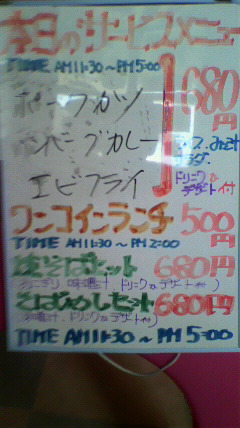 本日のサービスメニュー
TIME AM11:30～PM5:00
ポークカツ
ハンバーグカレー
エビフライ
680円
ライス みそ汁
サラダ
ドリンク&
デザート付
ワンコインランチ 500円
TIME AM11:30～PM2:00
焼そばセット 680円
(おにぎり 味噌汁 ドリンク&デザート付)
そばめしセット 680円
(味噌汁 ドリンク&デザート付)
TIME AM11:30～PM5:00